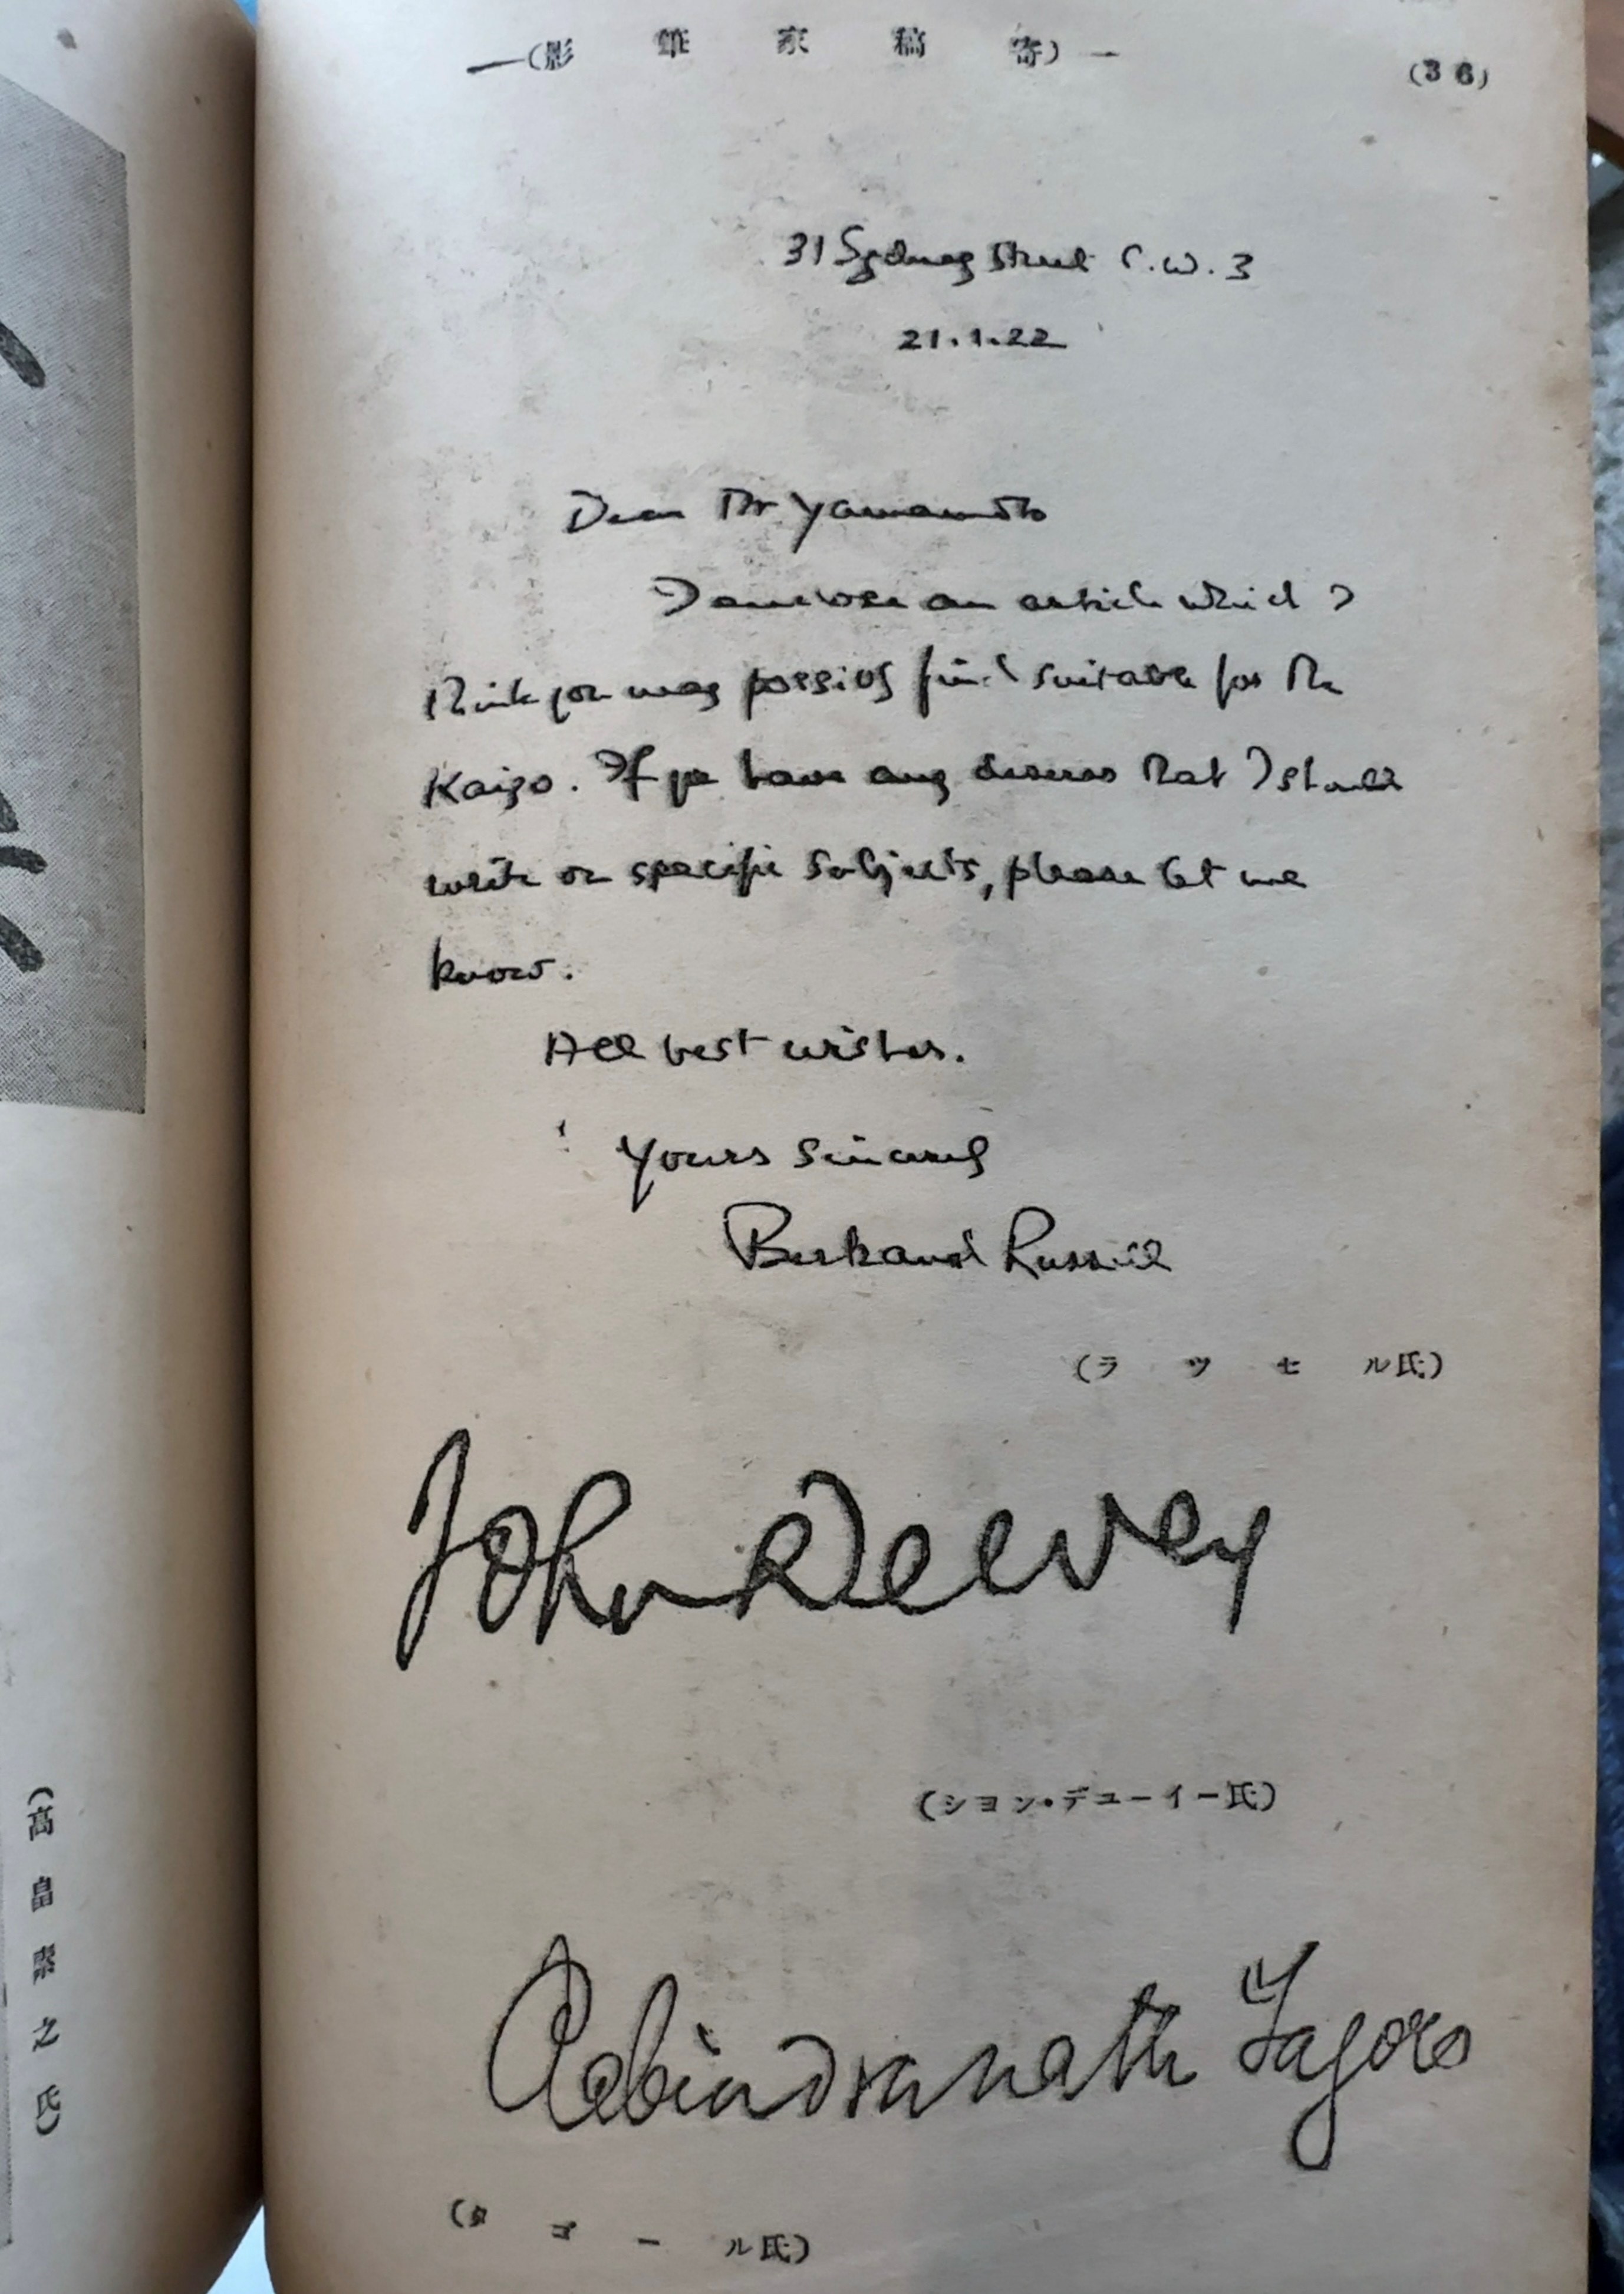 —(影筆家稿寄)—
(36)
31 Sydney Street S.W.3
21.1.22
Dear Mr Yamamoto
I enclose an article which I
think you may possibly find suitable for the
Kaizo. If you have any desires that I should
write on specific subjects, please let me
know.
All best wishes.
Yours sincerely
Bertrand Russell
(ラツセル氏)
John Dewey
(ジヨン・デューイー氏)
Rabindranath Tagore
(タゴール氏)
(高畠素之氏)